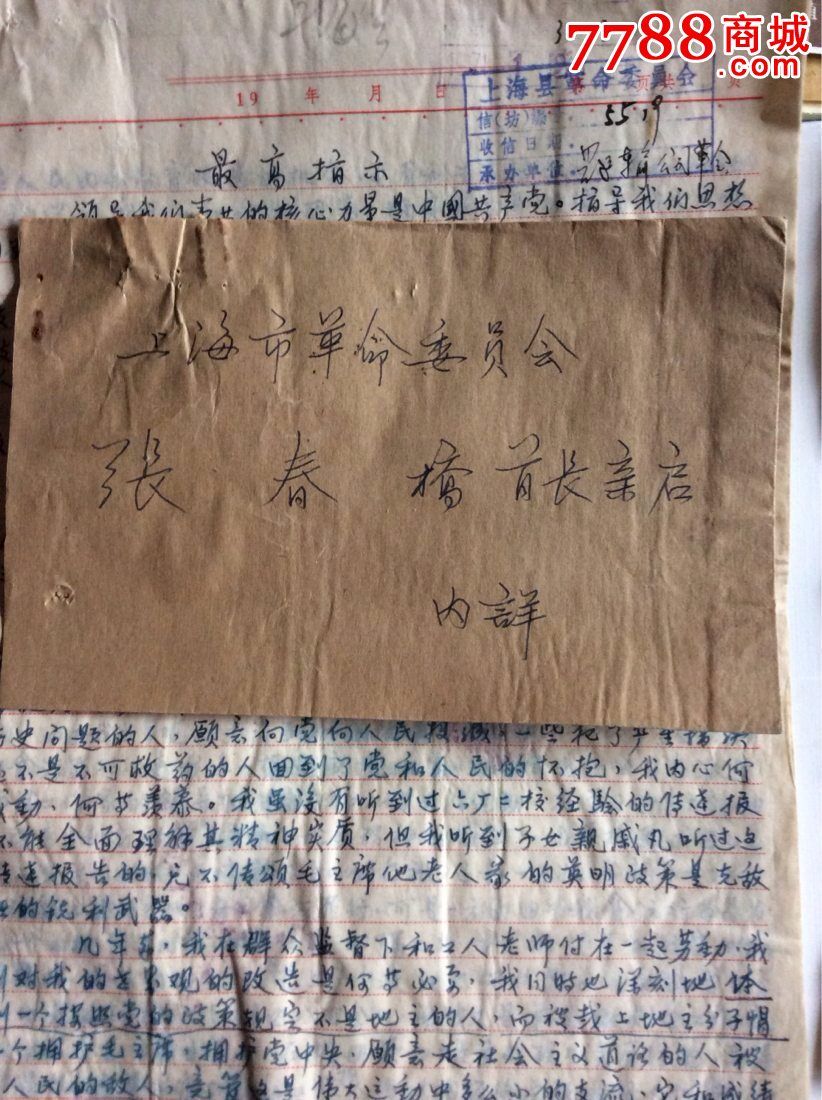 7788商城
19 年 月 日
上海县革命委员会
信(访)编 5519
收信日期
承办单位
最高指示
领导我们事业的核心力量是中國共产党。指导我们思想
上海市革命委员会
張春橋首长亲启
内詳
史问题的人,愿意向党向人民
不是不可救药的人回到了党和人民的怀抱,我内心何
动,何等羡慕。我虽没有听到过六厂二校经验的传达报
不能全面理解其精神实质,但我听到子女親戚凡听过这
传达报告的,无不传颂毛主席他老人家的英明政策是克敌
的锐利武器。
几年来,我在群众监督下和工人老师付在一起劳动,我
对我的世界观的改造是何等必要,我同时也深刻地体
一个按照党的政策规定不是地主的人,而被戴上地主分子帽
个拥护毛主席,拥护党中央,愿意走社会主义道路的人被
人民的敌人,竟管这是伟大运动中多么小的支流,它和成绩